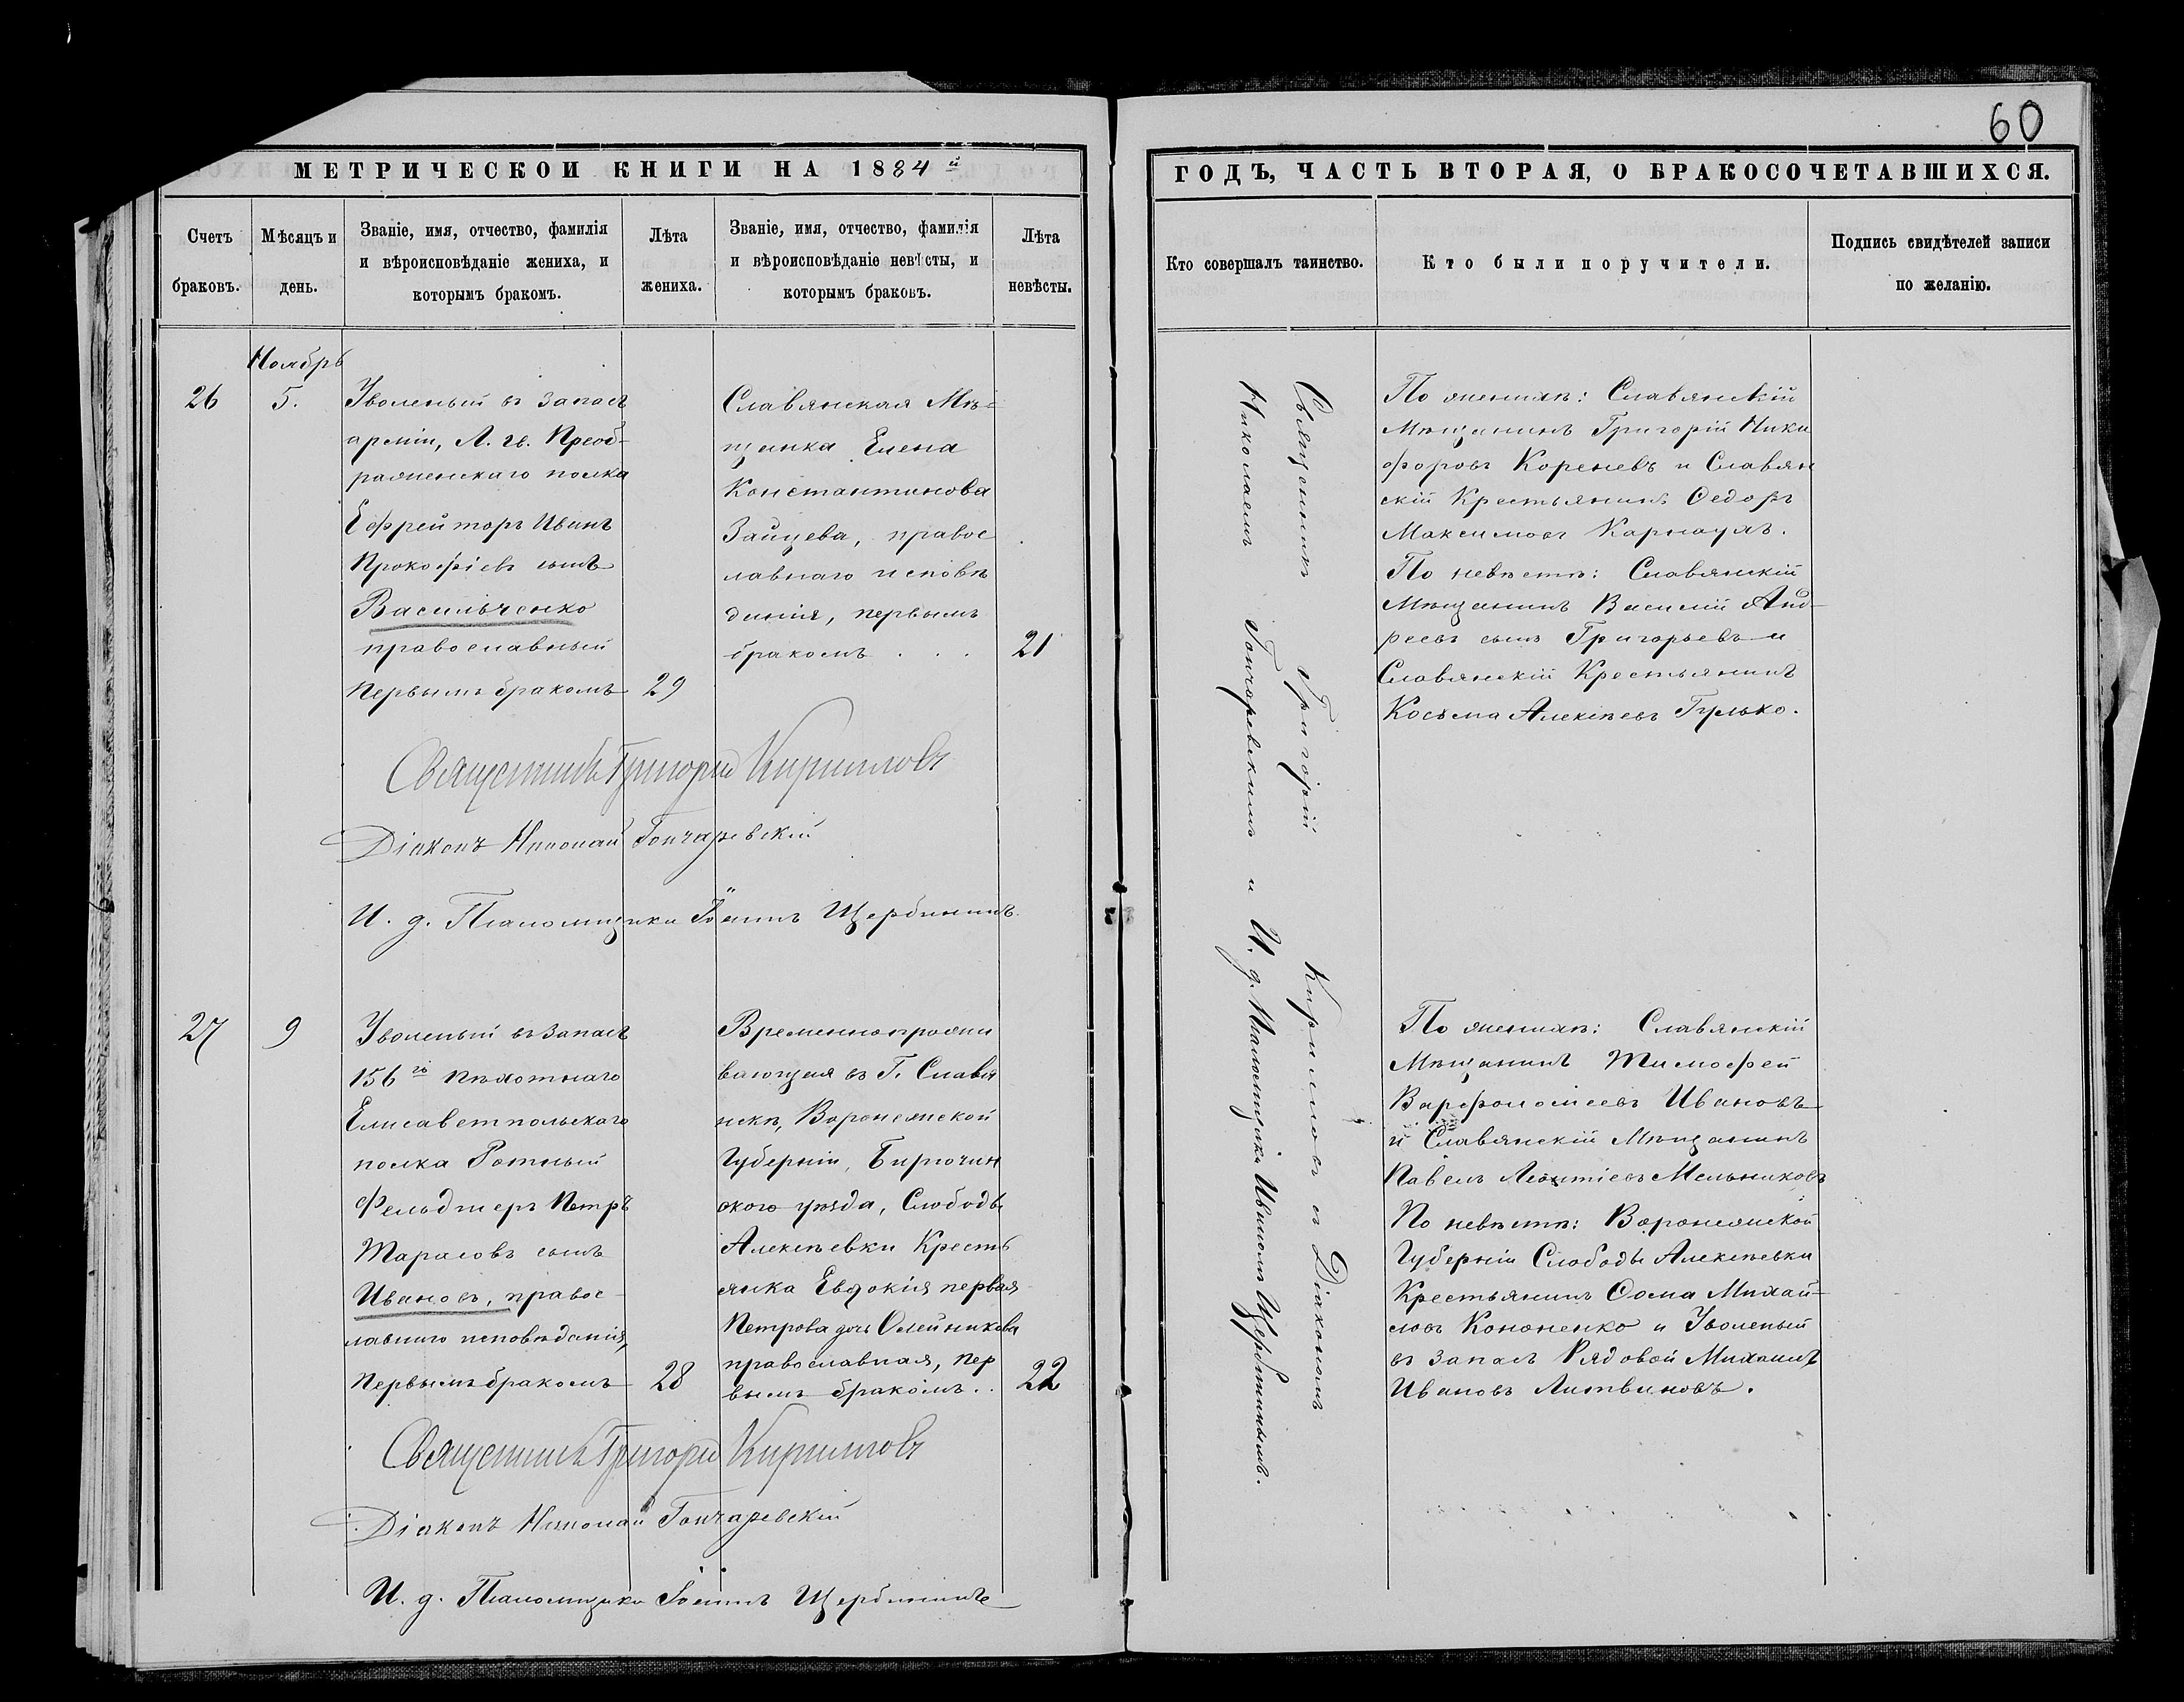 60
МЕТРИЧЕСКОЙ КНИГИ НА 1884й
ГОДЪ, ЧАСТЬ ВТОРАЯ, О БРАКОСОЧЕТАВШИХСЯ.
Счетъ
браковъ.
Мѣсяцъ и
день.
Званіе, имя, отчество, фамилія
и вѣроисповѣданіе жениха, и
которымъ бракомъ.
Лѣта
жениха.
Званіе, имя, отчество, фамилія
и вѣроисповѣданіе невѣсты, и
которымъ браковъ.
Лѣта
невѣсты.
Кто совершалъ таинство.
Кто были поручители.
Подпись свидѣтелей записи
по желанію.
Ноябрь
26
5.
Уволеный въ Запасъ
арміи, Л. гв. Преоб-
раженскаго полка
Ефрейторъ Иванъ
Прокофіевъ сынъ
Васильченко
православный
Первымъ бракомъ
29
Славянская Мѣ-
щанка Елена
Константинова
Зайцева, правос
лавнаго исповѣ
данія, первымъ
бракомъ . . .
21
Священникъ Григорій Кирилловъ
Діаконъ Николай Гончаревскій
И. д. Псаломщика Іоаннъ Щербининъ.
27
9
Уволеный въ Запасъ
156го Пѣхотнаго
Елисаветпольскаго
полка Ротный
Фельдшеръ Петръ
Тарасовъ сынъ
Ивановъ, правос-
лавнаго исповѣданія,
Первымъ бракомъ
28
Временнопрожи
вающая въ Г. Славя
нскѣ, Воронежской
Губерніи, Бирючин
скаго уѣзда, Слободы
Алексѣевки Кресть
янка Евдокія первая
Петрова дочь Олейникова
православная, пер
вымъ бракомъ. .
22
Священникъ Григорій Кирилловъ
Діаконъ Николай Гончаревскій
И. д. Псаломщика Іоаннъ Щербининъ
Священникъ Григорій Кирилловъ съ Діакономъ
Николаемъ Гончаревскимъ и И. д. Псаломщика Иваномъ Щербининымъ.
По женихѣ: Славянскій
Мѣщанинъ Григорій Ники
форовъ Кореневъ и Славян
скій Крестьянинъ Ѳедоръ
Максимовъ Карнаухъ.
По невѣстѣ: Славянскій
Мѣщанинъ Василій Анд-
реевъ сынъ Григорьевъ и
Славянскій Крестьянинъ
Косьма Алексѣевъ Гулько.
По женихѣ: Славянскій
Мѣщанинъ Тимофей
Варфоломеевъ Ивановъ
и Славянскій Мѣщанинъ
Павелъ Леонтіевъ Мельниковъ
По невѣстѣ: Воронежской
Губерніи Слободы Алексѣевки
Крестьянинъ Ѳома Михай-
ловъ Кононенко и Уволеный
въ Запасъ Рядовой Михаилъ
Ивановъ Литвиновъ.